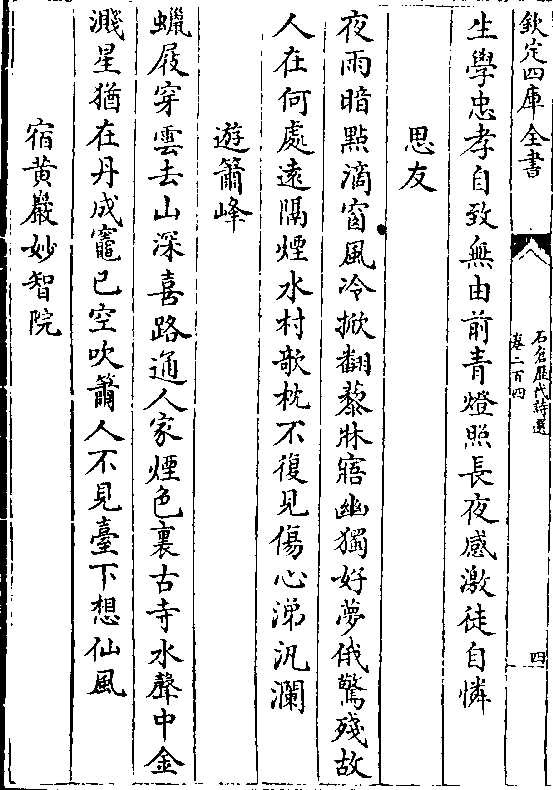 欽定四庫全書
石倉歷代詩選
卷二百四
四
生學忠孝自致無由前青燈照長夜感激徒自憐
思友
夜雨暗點滴窗風冷掀翻藜牀寤幽獨好夢俄驚殘故
人在何處遠隔煙水村欹枕不復見傷心涕汎瀾
遊簫峰
蠟屐穿雲去山深喜路通人家煙色裏古寺水聲中金
濺星猶在丹成竈已空吹簫人不見臺下想仙風
宿黃巖妙智院